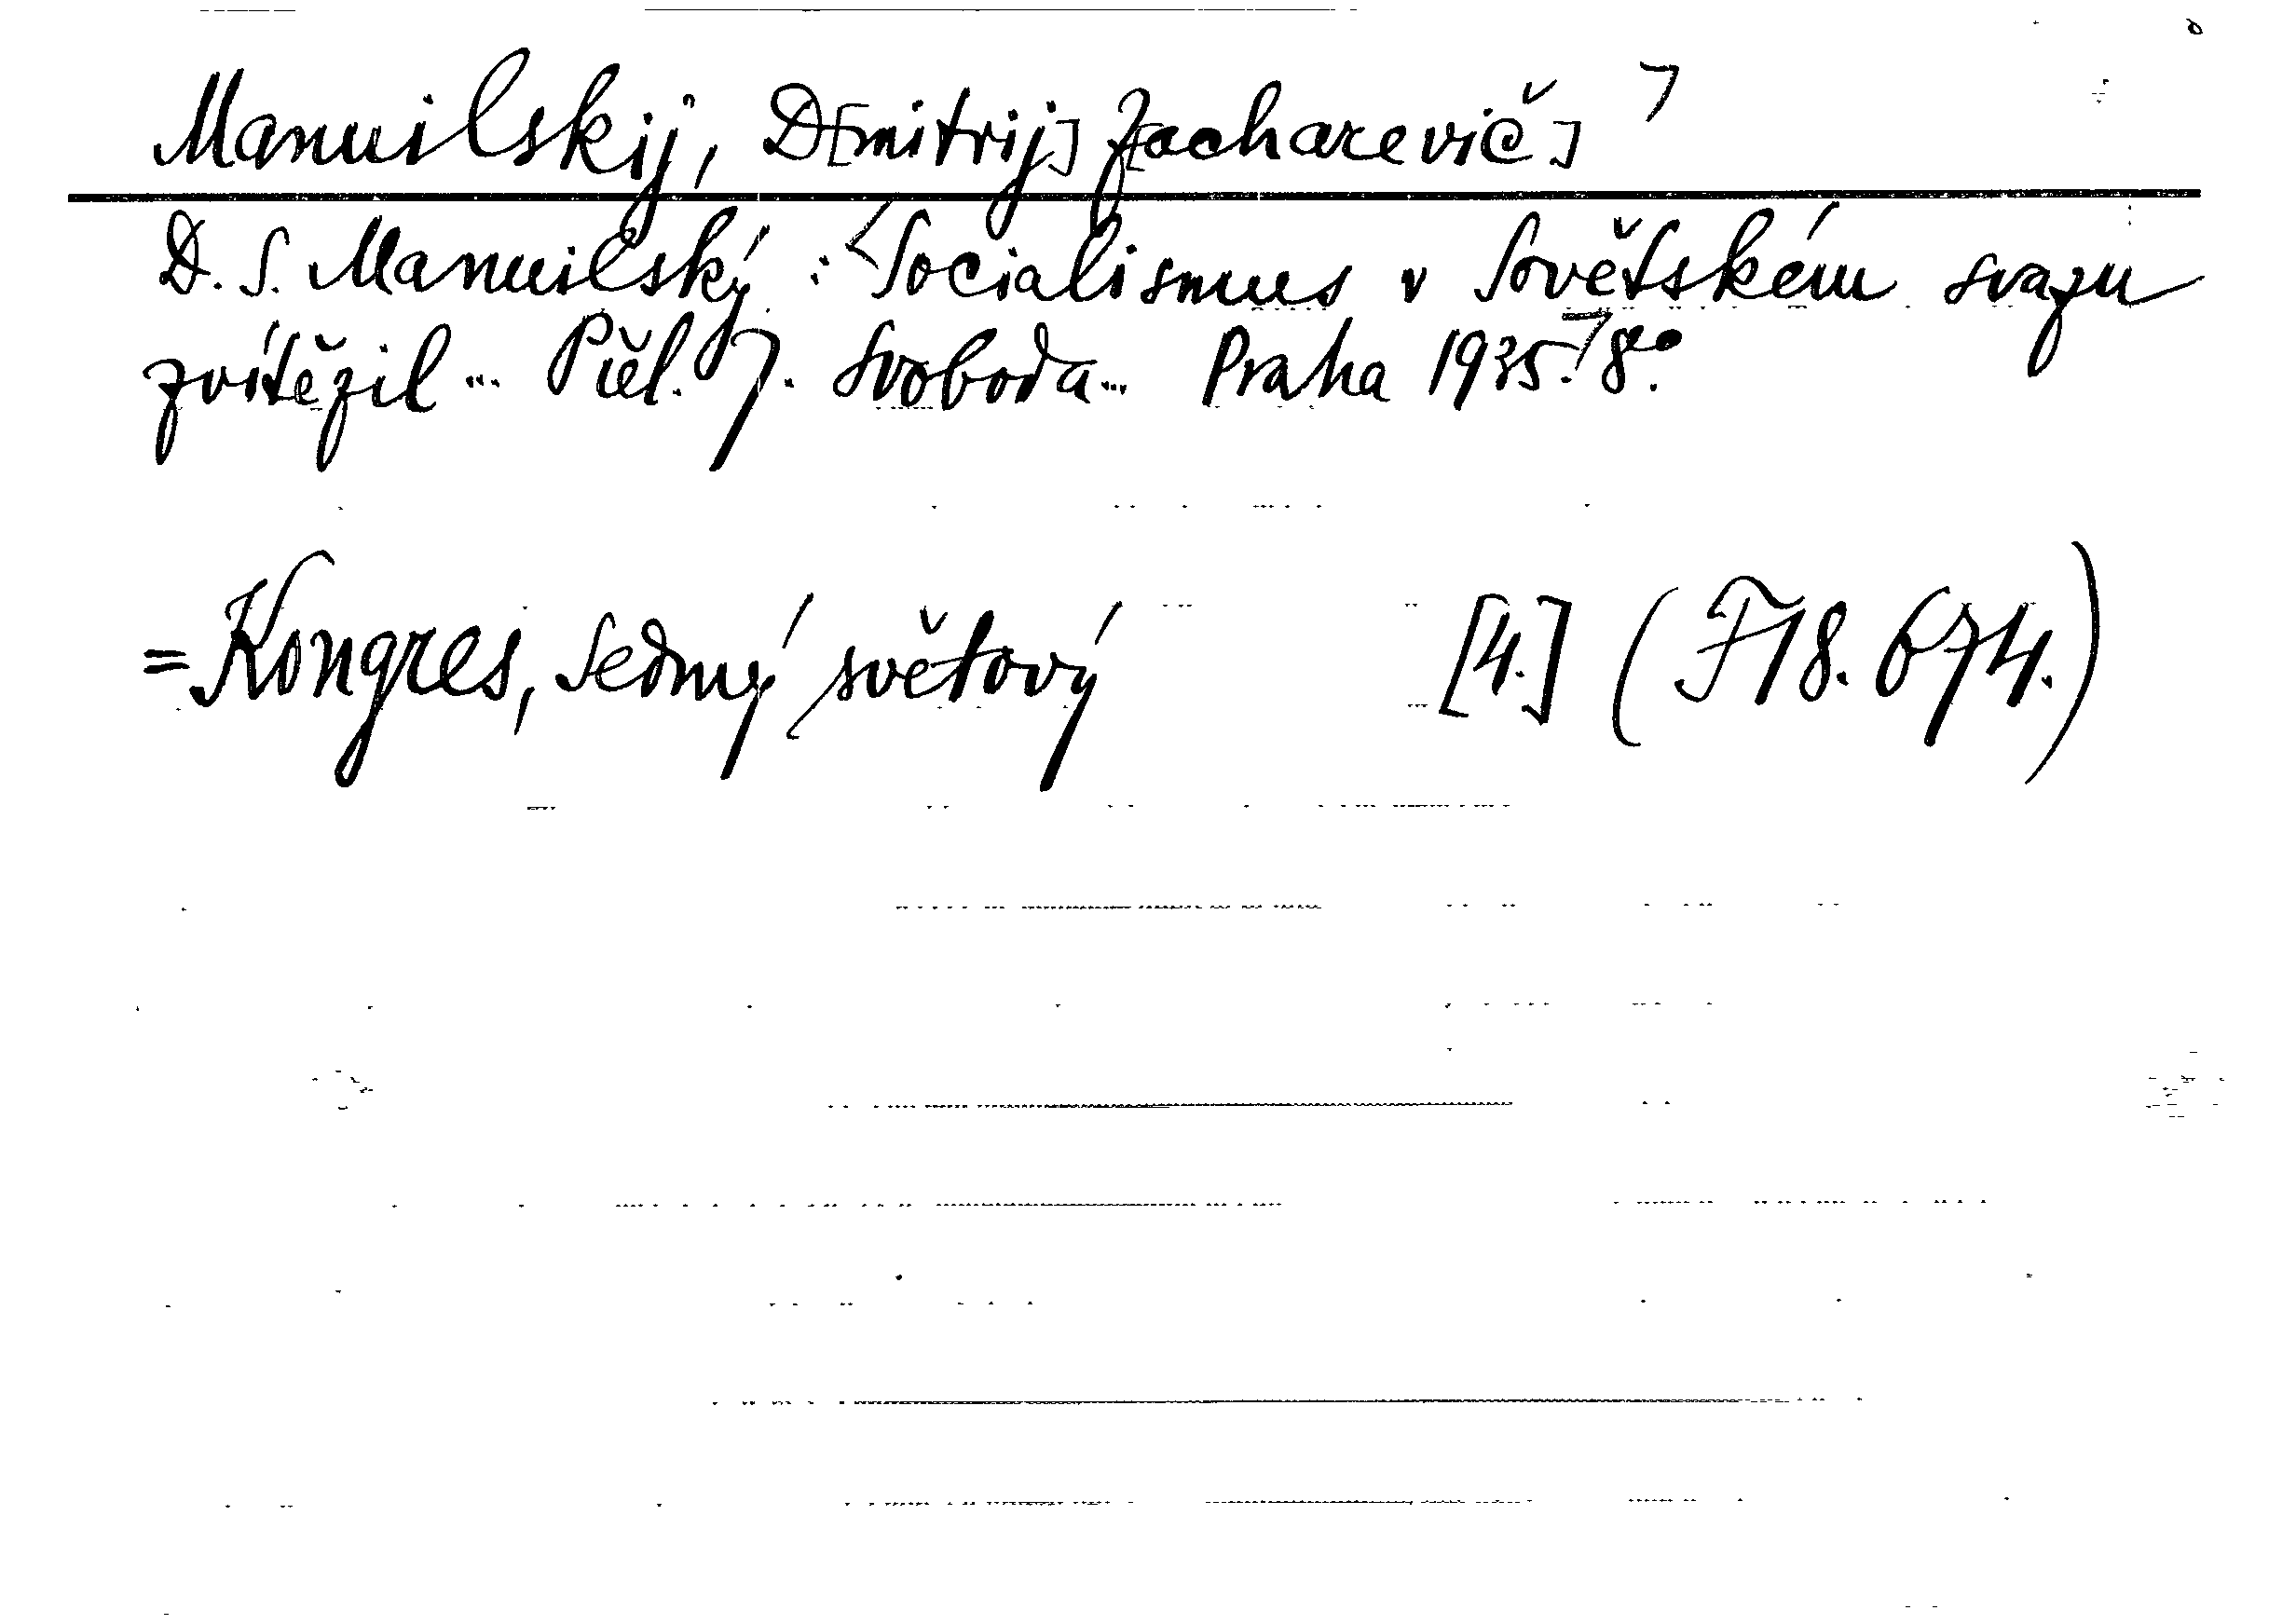 Manuilskij, D[mitrij] Z[acharevič]
D. S. Manuilský : Socialismus v Sovětském svazu
zvítězil ... Přel. J. Svoboda ... Praha 1935. 8°.
= Kongres, Sedmý světový [4.] (F 18.674.)